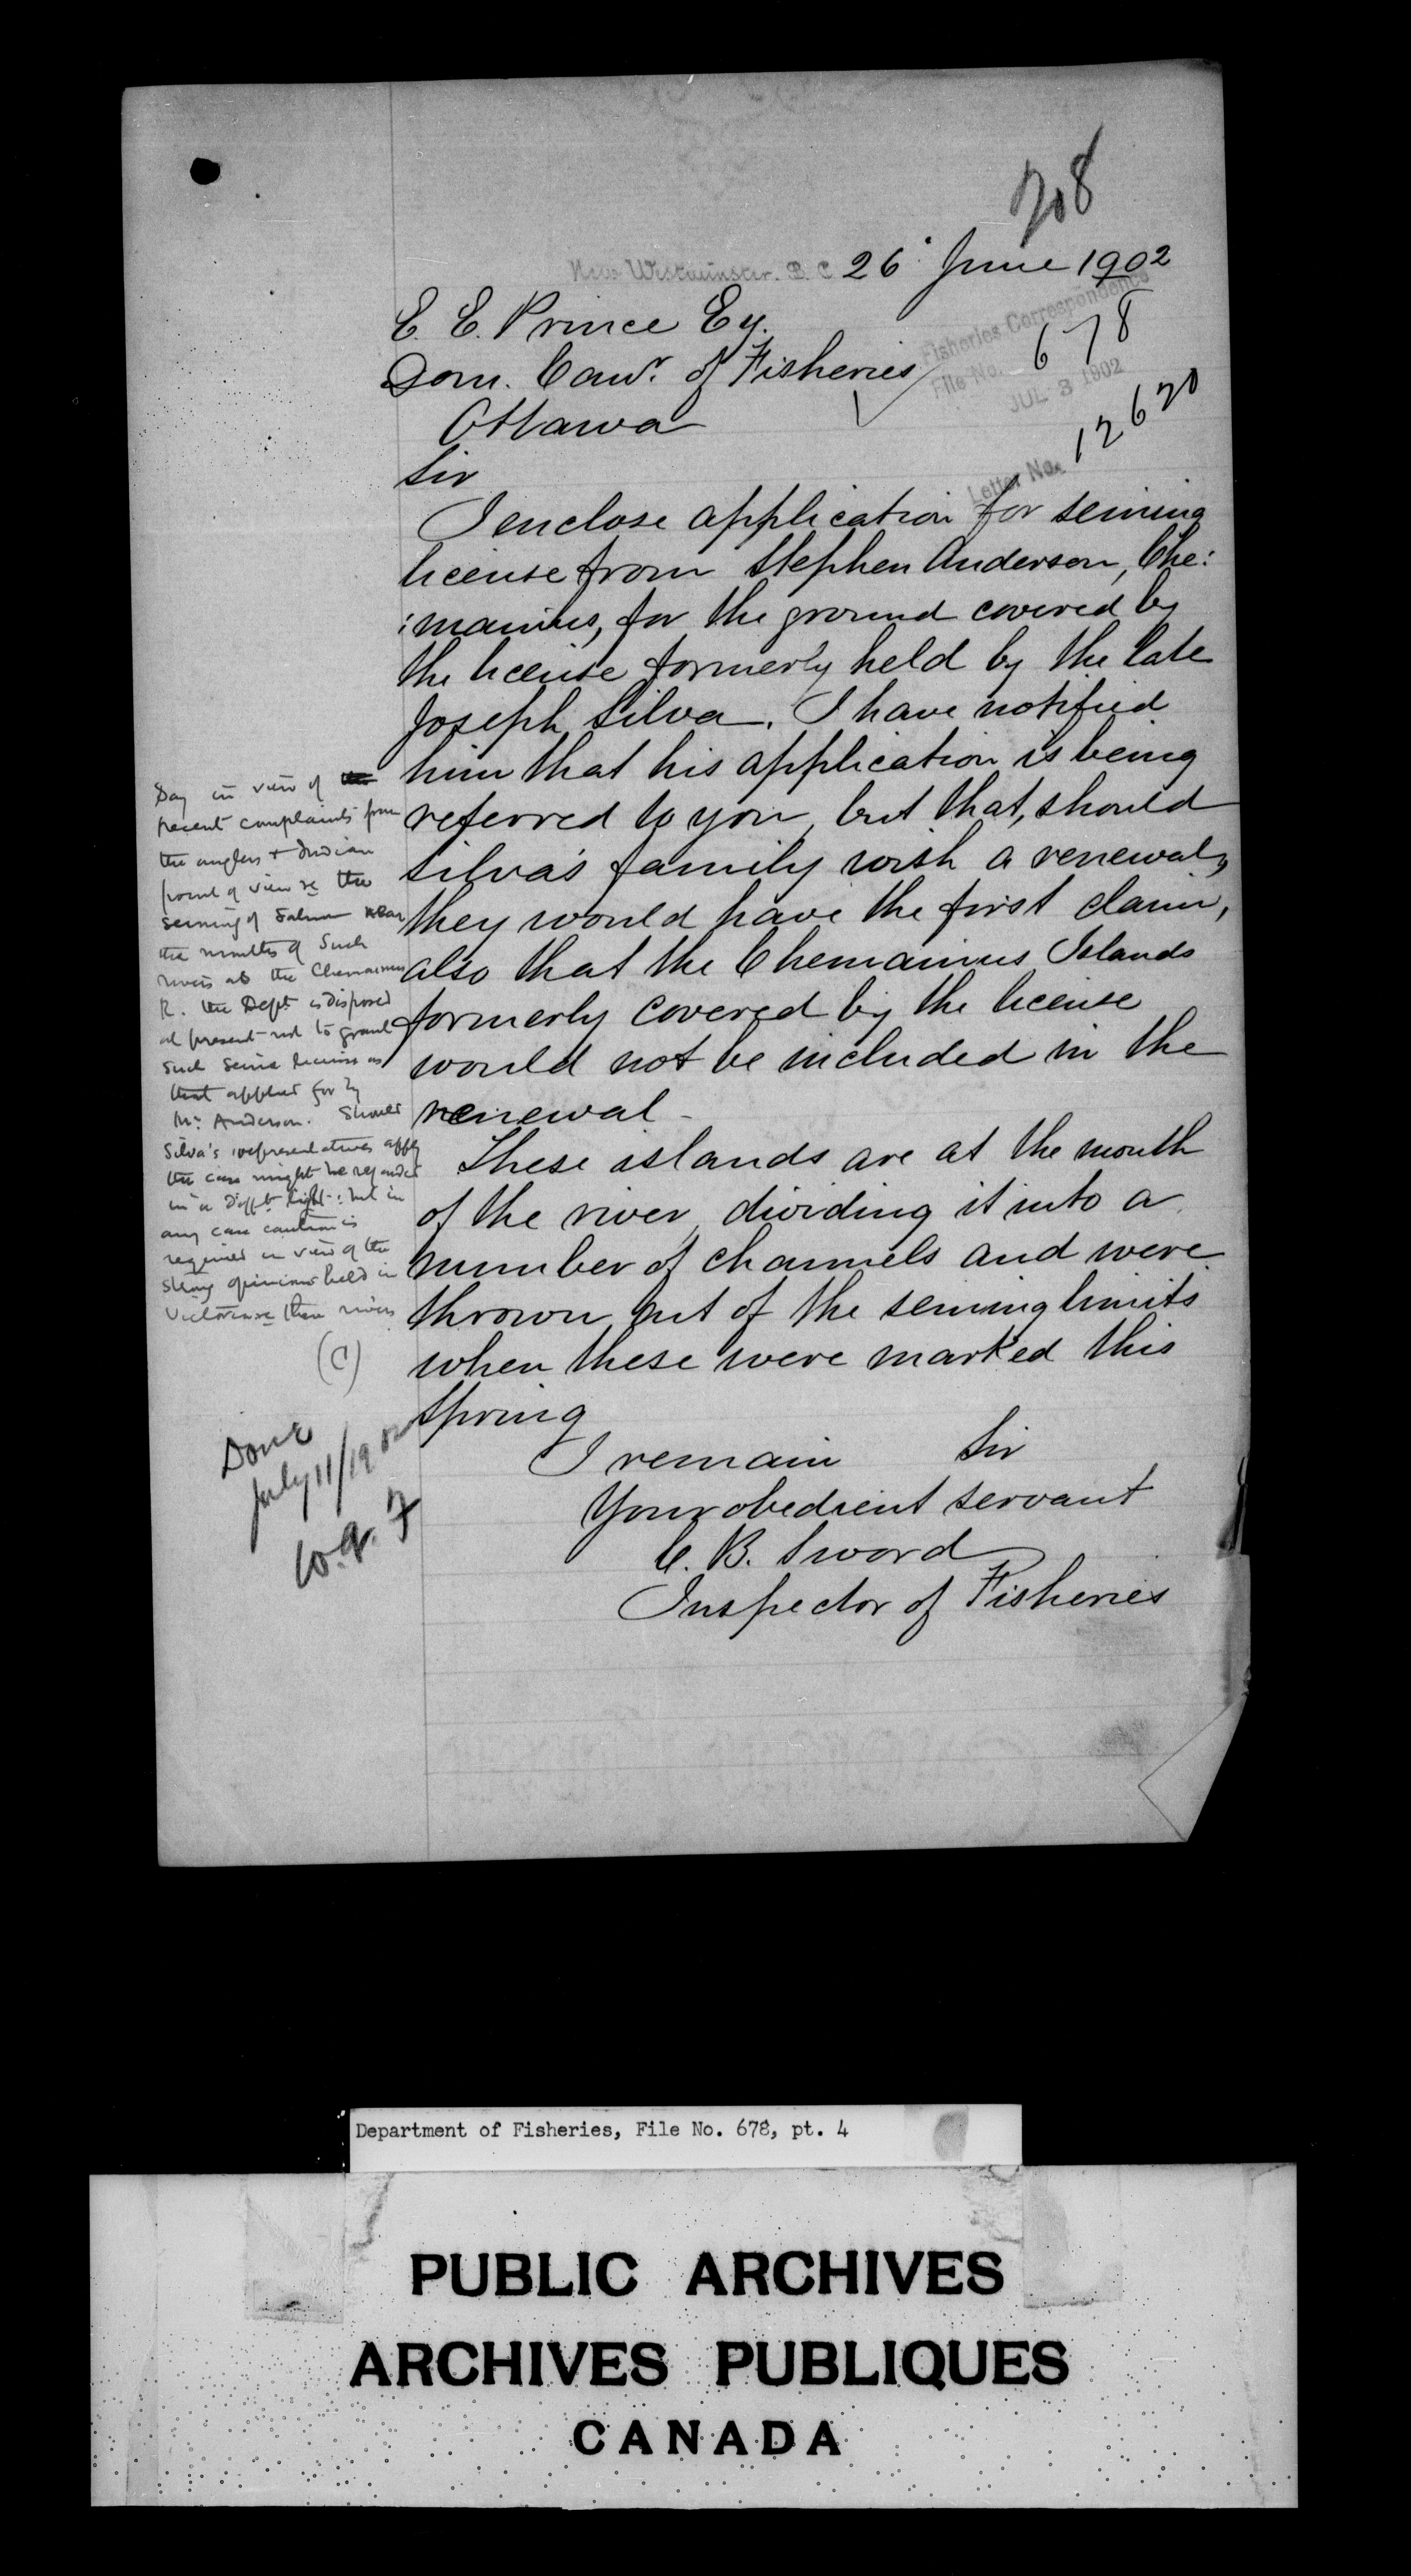 208
New Westminster. B. C. 26 June 1902
Fisheries Correspondence
File No. 678
JUL 3 1902
Letter No. 12620
E. E. Prince Esq.
Dom. Comr. of Fisheries
Ottawa
Sir
I enclose application for seining
license from Stephen Anderson, Che:
:mainus, for the ground covered by
the license formerly held by the late
Joseph Silva. I have notified
him that his application is being
referred to you, but that, should
Silva's family wish a renewal,
they would have the first claim,
also that the Chemainus Islands
formerly covered by the license
would not be included in the
renewal -
These islands are at the mouth
of the river, dividing it into a
number of channels and were
thrown out of the seining limits
when these were marked this
spring
I remain Sir
Your obedient servant
C. B. Sword
Inspector of Fisheries
Say in view of
recent complaints from
the anglers & Indian
point of view re the
seining of Salmon near
the mouths of such
rivers as the Chemainus
R. the Dept. is disposed
at present not to grant
such seine license as
that applied for by
Mr. Anderson. Should
Silva's representatives apply
the case might be regarded
in a difft light: but in
any case caution is
required in view of the
strong opinions held in
Victoria re these rivers
(C)
Done
July 11/1902
Department of Fisheries, File No. 678, pt. 4
PUBLIC ARCHIVES
ARCHIVES PUBLIQUES
CANADA